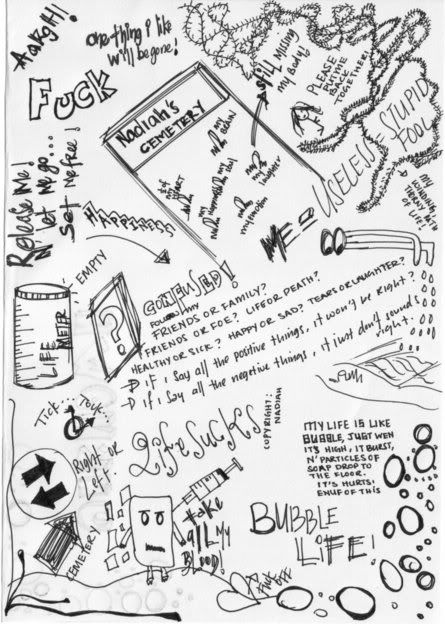 Aargh!
one thing i like
will be gone!
FUCK
Nadiah's
CEMETERY
my
BRAIN
my
HEART
my
my
laughter
my emotion
still missing
my body!
PLEASE
PUT ME
BACK
TOGETHER!
USELESS = STUPID
FOOL
MY
OF LIFE
Release me!
N' let me go...
Set me free!
Happiness
ME =
EMPTY
LIFE
METR
?
CONFUSED!
FRIENDS OR FAMILY?
FRIENDS OR FOE? LIFE OR DEATH?
HEALTHY OR SICK? HAPPY OR SAD? TEARS OR LAUGHTER?
→ if i say all the positive things, it won't be Right?
→ if i say all the negative things, it just don't sounds
right.
Tick... Tock...
Life Sucks
COPYRIGHT:
NADIAH
Right or
Left
MY LIFE IS LIKE
BUBBLE, JUST WEN
IT'S HIGH, IT BURST,
N' PARTICLES OF
SOAP DROP TO
THE FLOOR.
IT'S HURTS!
ENUF OF THIS
CEMETERY
take
all my
BLOOD!
BUBBLE
LiFE!